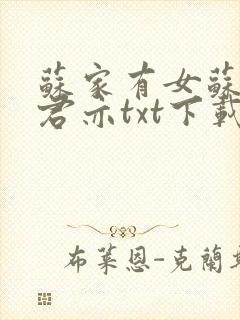 蘇家有女蘇
君亦txt下載
布萊恩-克蘭